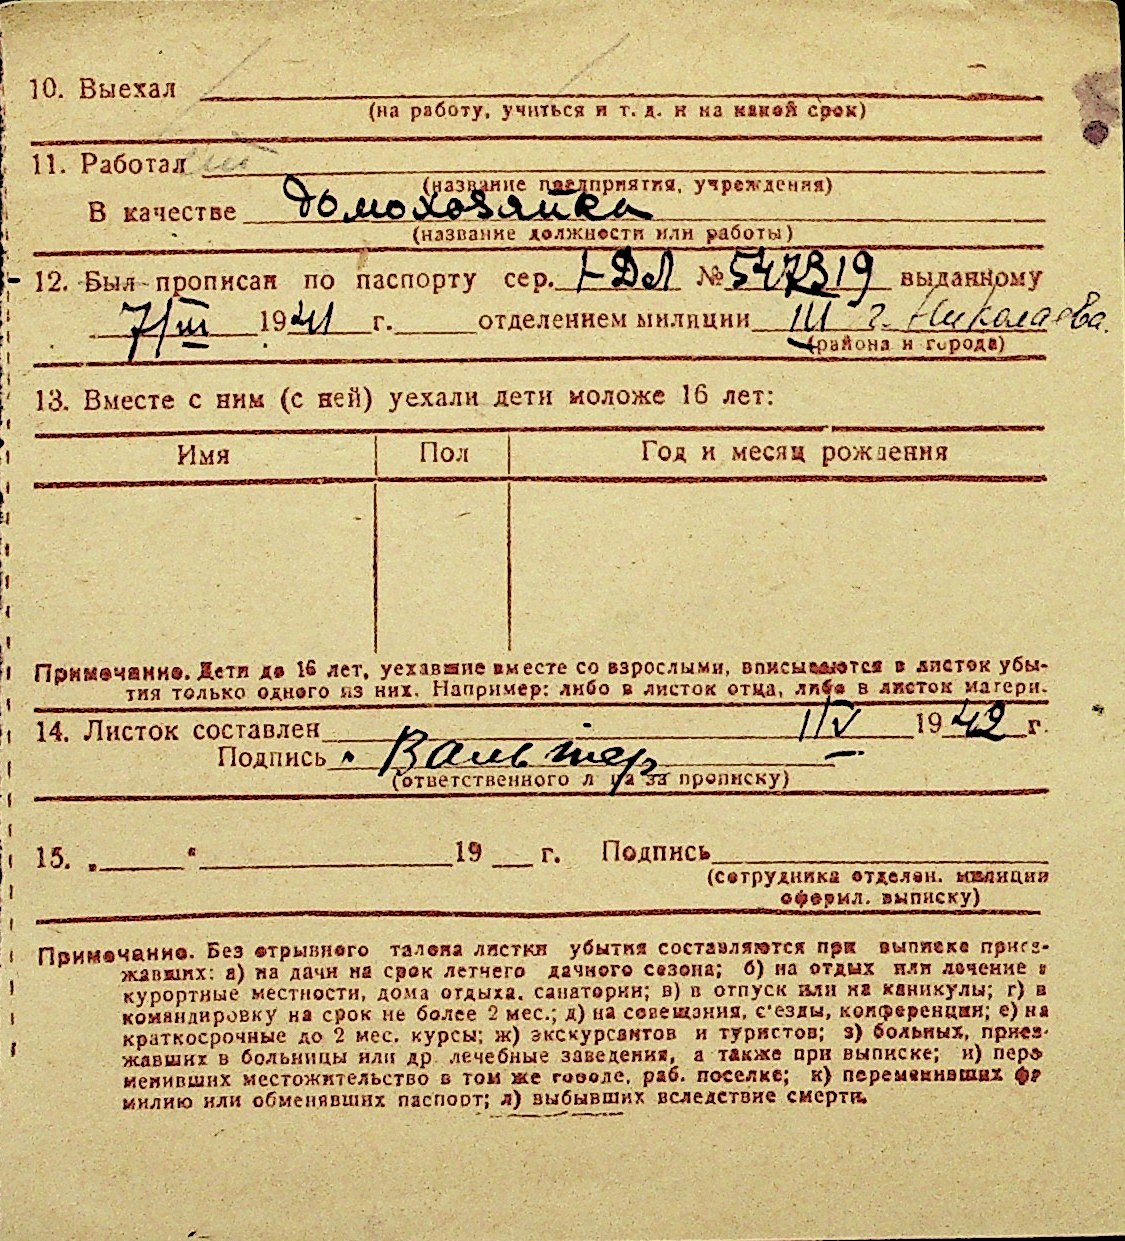 10. Выехал
(на работу, учиться и т. д. и на какой срок)
11. Работал
(название предприятия, учреждения)
В качестве домохозяйка
(название должности или работы)
12. Был прописан по паспорту сер. I-ДЛ № 547319 выданному
7/III 1941 г. отделением милиции III г. Николаева.
(района и города)
13. Вместе с ним (с ней) уехали дети моложе 16 лет:
Имя Пол Год и месяц рождения
Примечание. Дети до 16 лет, уехавшие вместе со взрослыми, вписываются в листок убы-
тия только одного из них. Например: либо в листок отца, либо в листок матери.
14. Листок составлен 1/V 1942 г.
Подпись Вальтер
(ответственного лица за прописку)
15. „ “ 19 г. Подпись
(сотрудника отделен. милиции
оформл. выписку)
Примечание. Без отрывного талона листки убытия составляются при выписке приез-
жавших: а) на дачи на срок летнего дачного сезона; б) на отдых или лечение в
курортные местности, дома отдыха, санатории; в) в отпуск или на каникулы; г) в
командировку на срок не более 2 мес.; д) на совещания, с'езды, конференции; е) на
краткосрочные до 2 мес. курсы; ж) экскурсантов и туристов; з) больных, приез-
жавших в больницы или др. лечебные заведения, а также при выписке; и) пере
менивших местожительство в том же городе, раб. поселке; к) переменивших фа
милию или обменявших паспорт; л) выбывших вследствие смерти.